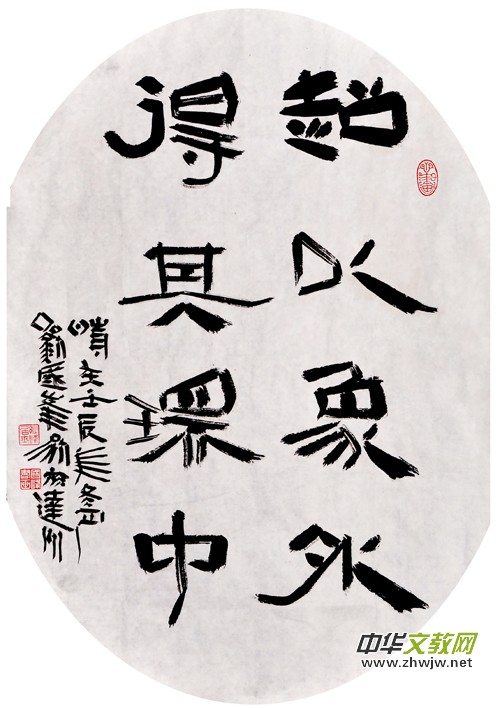 超以象外
得其環中
時在壬辰年冬
達州
中华文教网
www.zhwjw.net